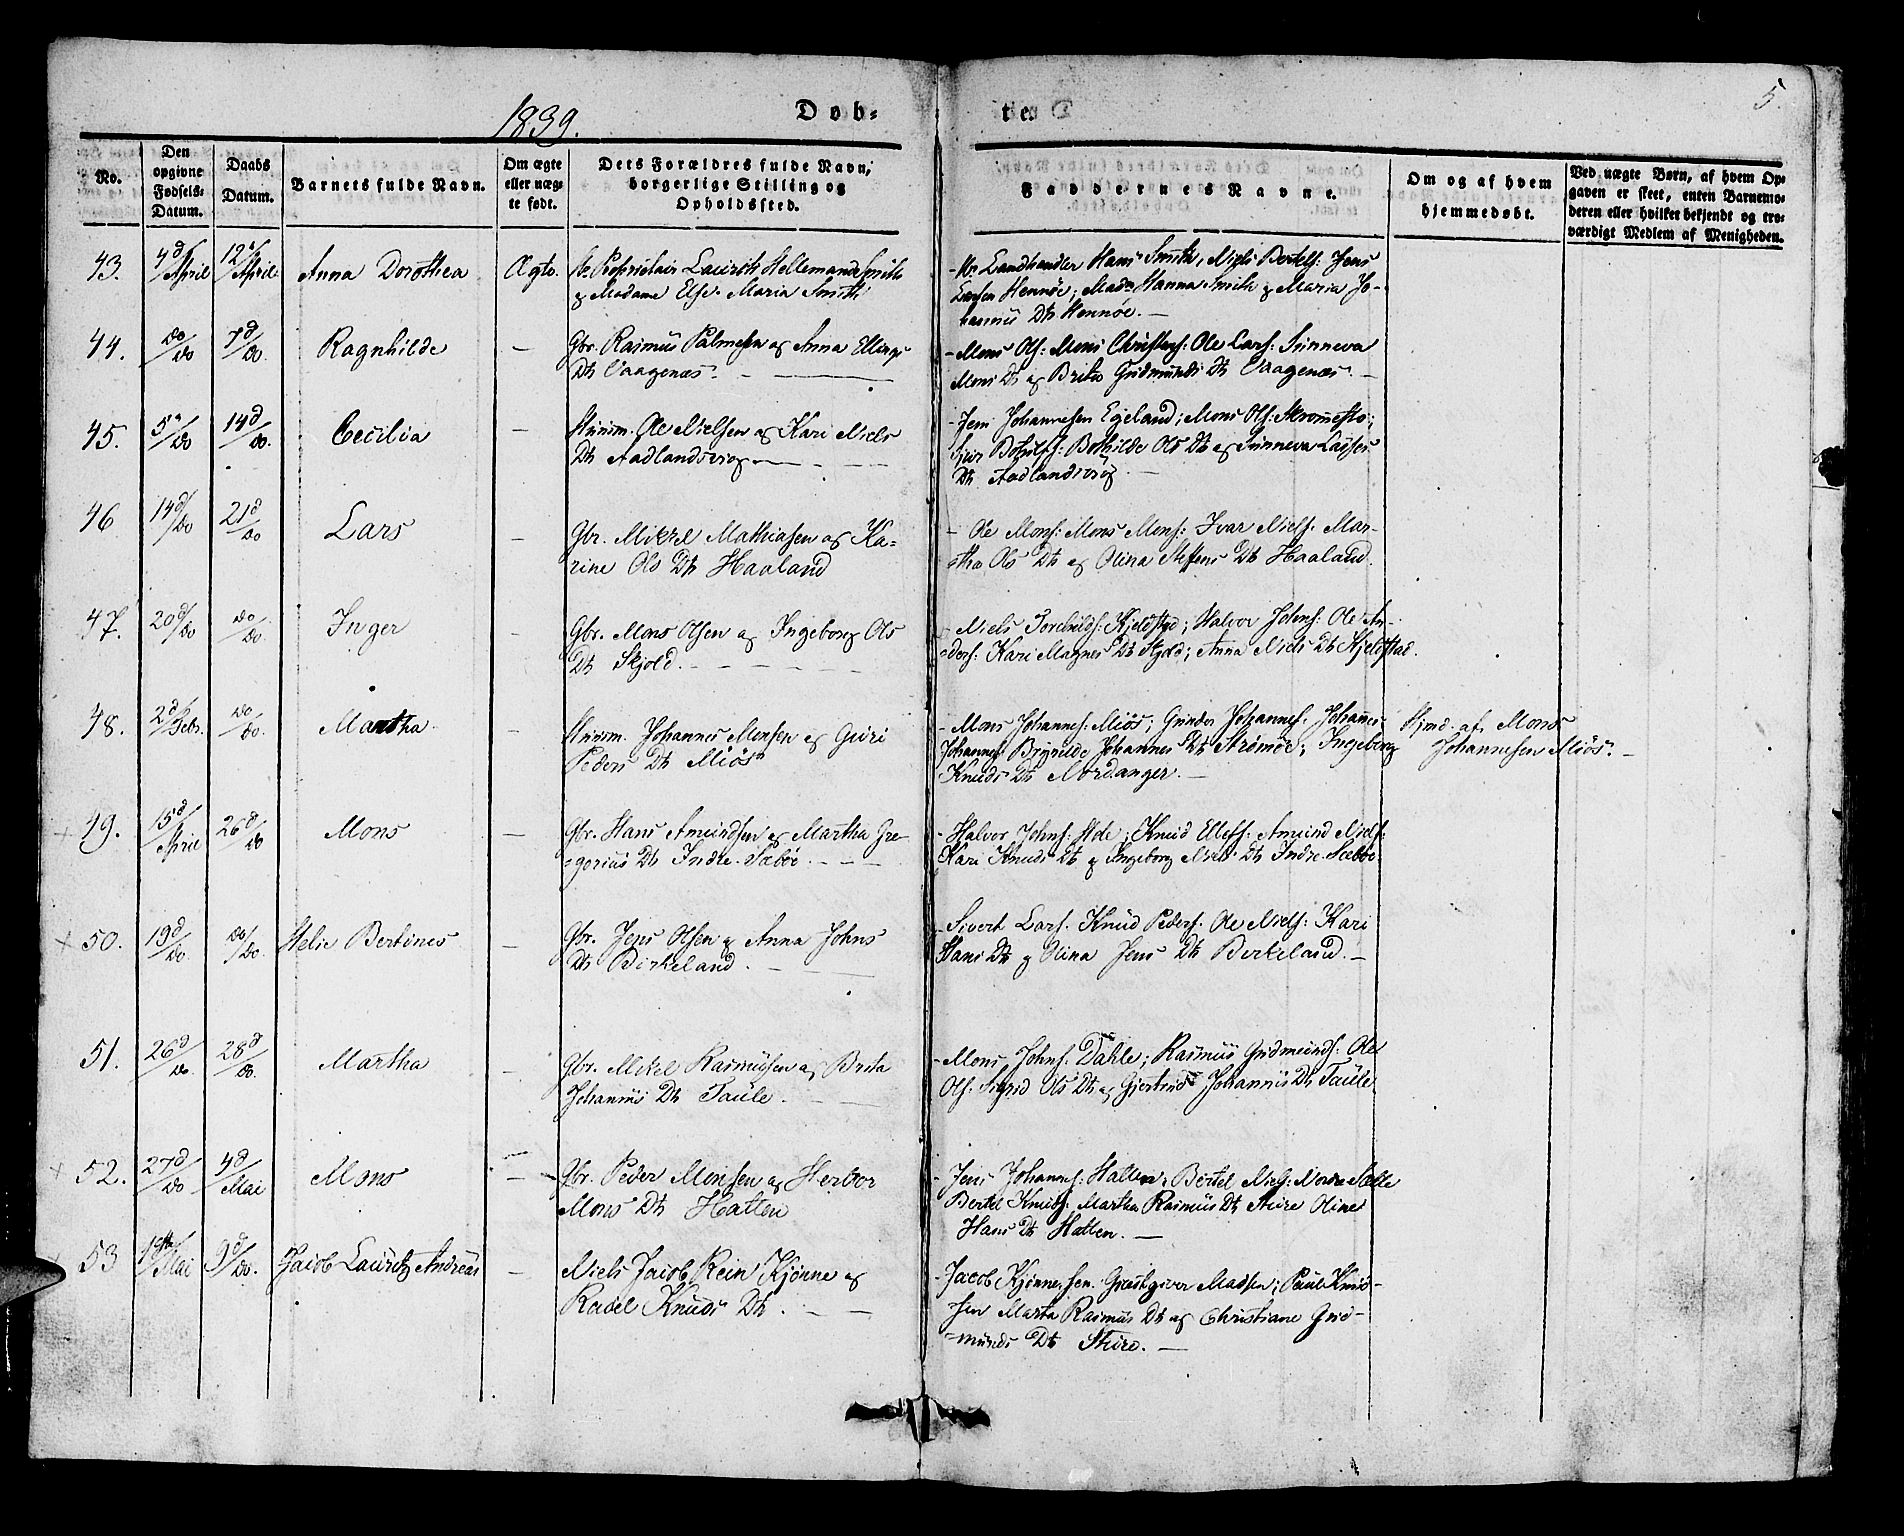 1839.
Døb-
te.
5.
No.
Den opgivne Fødsels-Datum.
Daabs Datum.
Barnets fulde Navn.
Om ægte eller uægte født.
Dets Forældres fulde Navn, borgerlige Stilling og Opholdssted.
Faddernes Navne.
Om og af hvem hjemmedøbt.
Ved uægte Børn, af hvem Opgaven er skeet, enten Barnemoderen eller hvilket bekjendt og troværdigt Medlem af Menigheden.
43. 4d/April 12/April Anna Dorothea Ægte. Hr. Proprietair Lauritz Hellemand Smith
& Madame Else Maria Smith
- Hr. Landhandler Hans Smith, Niels Bertels: Jens
Larsen Hennöe; Mad. Hanna Smith & Maria Jo-
hannis Dtr Hennöe. —
44. do/do 7d/do. Ragnhilde — Gbr. Rasmus Palmesen og Anna Ellings
Dtr Vaagenæs. —
- Mons Ols: Mons Christens: Ole Lars: Sunneva
Mons Dtr og Brita Gudmunds Dtr Vaagenæs. —
45. 5/do 14d/do. Cecilia — Huusm. Ole Nielsen og Kari Niels
Dtr Aadlandsvog —
- Jens Johannesen Egeland; Mons Ols:
Bothilde Ols Dtr og Sunneva Lasses
Dtr Aadlandsvog —
46 14d/do 21d/do Lars — Gbr. Mikkel Mathiasen og Ka-
rine Ols Dtr Haaland
- Ole Mons: Mons Mons: Ivar Niels: Mar-
tha Ols Dtr og Olina Steffens Dtr Haaland.
47. 20d/do do/do. Inger — Gbr. Mons Olsen og Ingeborg Ols
Dtr Skjold. —
- Niels Torchilds: Kjeldstad; Halvor Johns: Ole An-
ders: Kari Magnes Dtr Skjold; Anna Niels Dtr Kjeldstad.
48. 2d/Febr. do/do. Martha. — Huusm. Johannes Monsen og Guri
Peders Dtr Miös
- Mons Johannes: Miös; Johannes: Johannes
Johannes: Brynilde Johannes Dtr Strömöe; Ingeborg
Knuds Dtr Nordanger. —
Hjmd. af Mons
Johannesen Miös. —
49. 15d/April 26d/do Mons — Gbr. Hans Amundsen og Martha Gre-
gorius Dtr Indre-Sæböe —
- Halvor Johns: Hde; Knud Ellefs: Amund Niels:
Kari Knuds Dtr & Ingeborg Niels Dtr Indre-Sæböe
50. 19d/do do/do. Helie Bertines — Gbr. Jens Olsen & Anna Johns
Dtr Birkeland. —
- Sivert Lars: Knud Peders: Ole Niels: Kari
Hans Dtr & Olina Jens Dtr Birkeland. —
51. 26d/do. 28d/do. Martha — Gbr. Mikel Rasmussen og Brita
Johannis Dtr Taule. —
- Mons Johns: Dahle; Rasmus Gudmunds: Ole
Ols: Sigrid Ols Dtr og Gjertrud Johannis Dtr Taule
52. 27d/do 4d/Mai Mons — Gbr. Peder Monsen og Herbor
Mons Dtr Hatten
- Jens Johannes: Hatten, Bertel Niels: Nordre
Bertel Knuds: Martha Rasmus Dtr Sture Oline
Hans Dtr Hatten. —
53 1ste/Mai 9d/do. Jacob Lauritz Andreas — Niels Jacob Rein Kjönne og
Rasel Knuds Dtr. —
- Jacob Kjönnesen. Gæstgiver Madsen; Paul Knud-
sen Marta Rasmus Dtr og Christiane Gud-
munds Dtr Sture. —